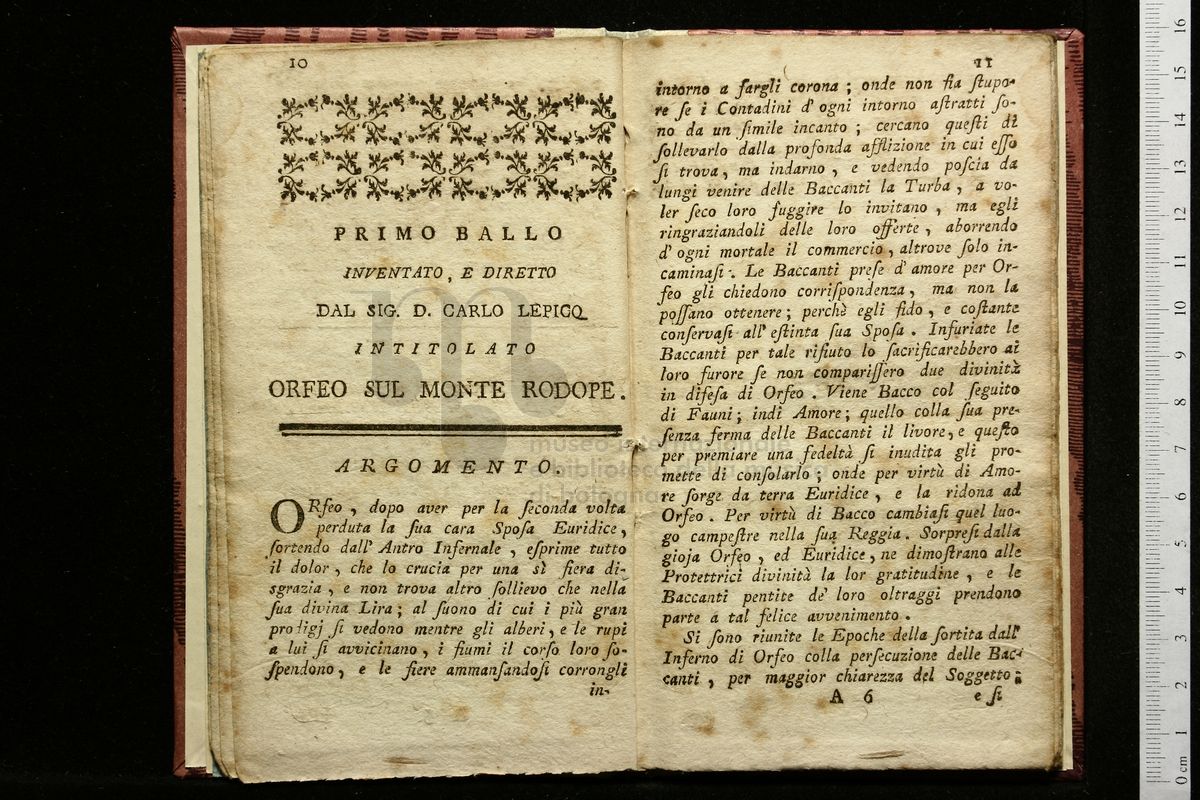 10
PRIMO BALLO
INVENTATO, E DIRETTO
DAL SIG. D. CARLO LEPICQ
INTITOLATO
ORFEO SUL MONTE RODOPE.
ARGOMENTO.
ORfeo, dopo aver per la ſeconda volta
perduta la ſua cara Spoſa Euridice,
ſortendo dall' Antro Infernale, eſprime tutto
il dolor, che lo crucia per una sì fiera di-
sgrazia, e non trova altro ſollievo che nella
ſua divina Lira; al ſuono di cui i più gran
prodigj ſi vedono mentre gli alberi, e le rupi
a lui ſi avvicinano, i fiumi il corſo loro ſo-
ſpendono, e le fiere ammanſandoſi corrongli
in-
11
intorno a fargli corona; onde non fia ſtupo-
re ſe i Contadini d' ogni intorno aſtratti ſo-
no da un ſimile incanto; cercano queſti di
ſollevarlo dalla profonda afflizione in cui eſſo
ſi trova, ma indarno, e vedendo poſcia da
lungi venire delle Baccanti la Turba, a vo-
ler ſeco loro fuggire lo invitano, ma egli
ringraziandoli delle loro offerte, aborrendo
d' ogni mortale il commercio, altrove ſolo in-
caminaſi. Le Baccanti preſe d' amore per Or-
feo gli chiedono corriſpondenza, ma non la
poſſano ottenere; perchè egli fido, e coſtante
conſervaſi all' eſtinta ſua Spoſa. Infuriate le
Baccanti per tale rifiuto lo ſacrificarebbero ai
loro furore ſe non compariſſero due divinità
in difeſa di Orfeo. Viene Bacco col ſeguito
di Fauni; indi Amore; quello colla ſua pre-
ſenza ferma delle Baccanti il livore, e queſto
per premiare una fedeltà ſi inudita gli pro-
mette di conſolarlo; onde per virtù di Amo-
re ſorge da terra Euridice, e la ridona ad
Orfeo. Per virtù di Bacco cambiaſi quel luo-
go campeſtre nella ſua Reggia. Sorpreſi dalla
gioja Orfeo, ed Euridice, ne dimoſtrano alle
Protettrici divinità la lor gratitudine, e le
Baccanti pentite de' loro oltraggi prendono
parte a tal felice avvenimento.
Si ſono riunite le Epoche della ſortita dall'
Inferno di Orfeo colla perſecuzione delle Bac-
canti, per maggior chiarezza del Soggetto;
A 6 e ſi
museo internazionale
e biblioteca della musica
di bologna
0 cm 1 2 3 4 5 6 7 8 9 10 11 12 13 14 15 16